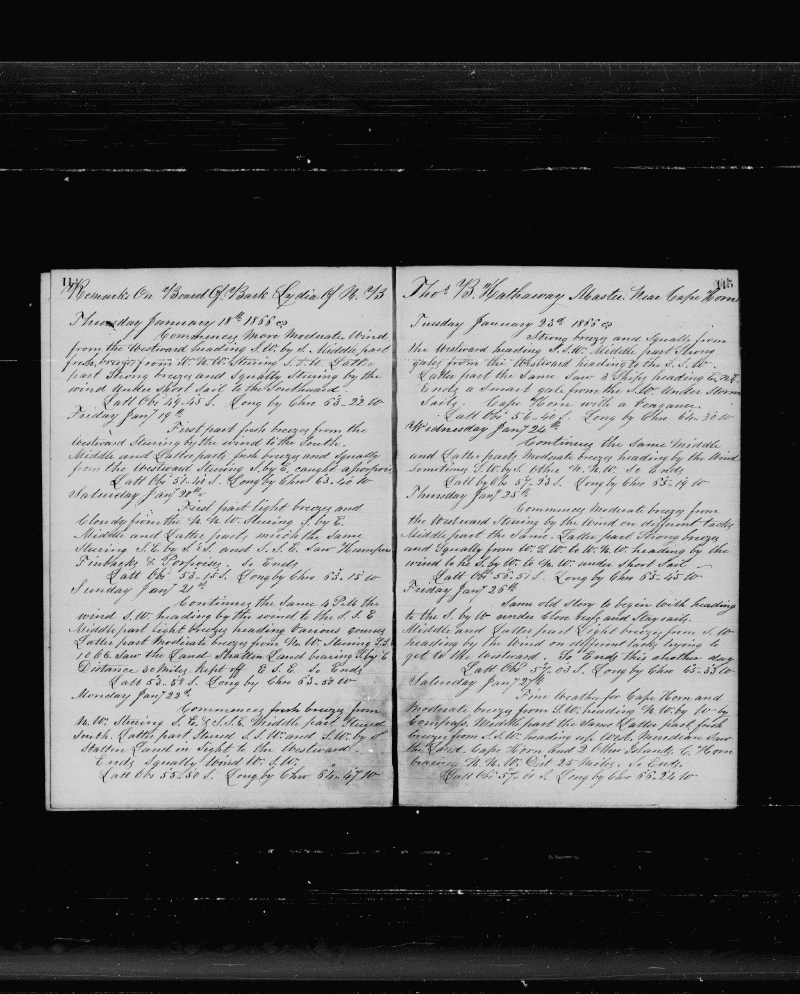 11
Remarks On Board Of Bark Lydia Of N. B
Thursday January 18th 1866
Commences More Moderate Wind
from the Westward heading S.W. by S. Middle part
fresh breezes from W.N.W. Steering S.S.W. Latter
part Strong breezes and Squally Steering by the
wind Under Short Sail to the Southward.
Latt Obs 49-45 S. Long by Chro 63-22 W
Friday Jany 19th
First part fresh breezes from the
Westward Steering by the wind to the South.
Middle and Latter parts fresh breeze and Squally
from the Westward Steering S. by E. caught a porpoise
Latt Obs 51-40 S. Long by Chro 63-40 W
Saturday Jany 20th
First part light breezes and
Cloudy from the N.N.W. Steering S. by E.
Middle and Latter part, much the same
Steering S.E. by S. and S.S.E. Saw Humps
Finbacks & Porpoises. So Ends
Latt Obs 53-15 S. Long by Chro 63-15 W
Sunday Jany 21st
Continues the Same 4 P.M. the
wind S.W. heading by the wind to the S.S.E
Middle part light breezes heading Various courses
Latter part Moderate breezes from N.W. Steering
Saw the Land Statten Land bearing S. by E
Distance 30 Miles. kept off E.S.E. So Ends
Latt 53-58 S. Long by Chro 63-50 W
Monday Jany 22nd
Commences fresh breezes from
N.W. Steering S.E. & S.S.E. Middle part Steered
South. Latter part Steered S.S.W. and S.W. by S
Statten Land in Sight to the Westward.
Ends Squally Wind W.S.W.
Latt Obs 55-50 S. Long by Chro 64-47 W
115
Thos B. Hathaway Master. Near Cape Horn
Tuesday January 23d 1866
Strong breezes and Squally from
the Westward heading S.S.W. Middle part Strong
gales from the Westward heading to the S.S.W.
Latter part the Same Saw 3 Ships heading to
Ends a Smart gale from the S.W. Under Storm
Sails. Cape Horn with a Vengance.
Latt Obs 56-40 S. Long by Chro 64-30 W
Wednesday Jany 24th
Continues the Same Middle
and Latter parts Moderate breezes heading by the Wind
Sometimes S.W. by S. Other N.N.W. So Ends
Latt by Obs 57-23 S. Long by Chro 65-19 W
Thursday Jany 25th
Commences Moderate breezes from
the Westward Steering by the Wind on different tacks
Middle part the Same. Latter part Strong breezes
and Squally from W.S.W. to W.N.W. heading by the
wind to the S. by W. to N.W. under Short Sail
Latt Obs 56-51 S. Long by Chro 65-45 W
Friday Jany 26th
Same old Story to begin With heading
to the S. by W under Close reefs and Stay sails.
Middle and Latter part Light breezes from S.W
heading by the Wind on different tacks trying to
get to the Westward. So Ends this another day
Latt Obs 57-03 S. Long by Chro 65-33 W
Saturday Jany 27th
Fine Weather for Cape Horn and
Moderate breezes from S.W. heading N.W. by W by
Compass. Middle part the Same Latter part fresh
breezes from S.S.W. heading up West. Meredian Saw
the Land. Cape Horn and 2 Other Islands. C. Horn
bearing N.N.W. Dist 25 Miles. So Ends.
Latt Obs 57-10 S. Long by Chro 66-24 W